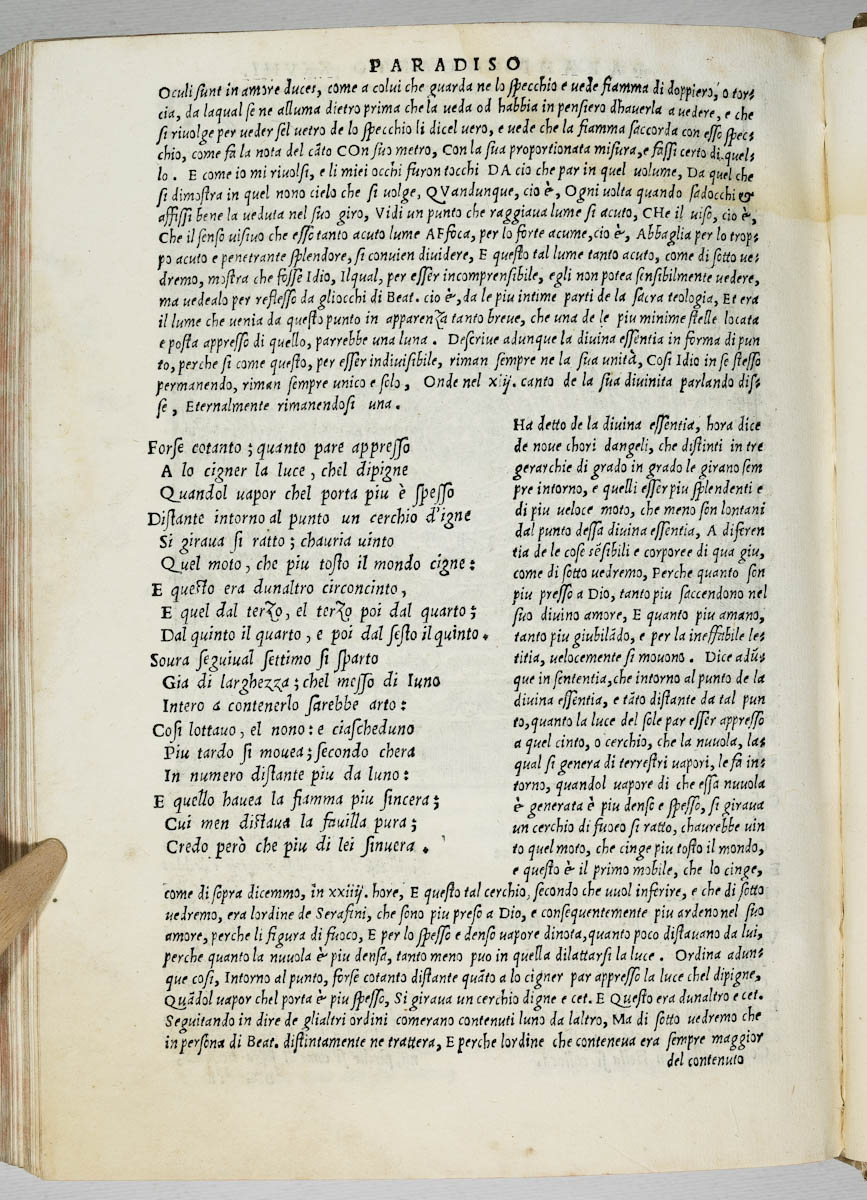 PARADISO
Oculi sunt in amore duces, come a colui che guarda ne lo specchio e vede fiamma di doppiero, o tor-
cia, da laqual se ne alluma dietro prima che la veda od habbia in pensiero dhaverla a vedere, e che
si rivolge per veder sel vetro de lo specchio li dicel vero, e vede che la fiamma saccorda con esso spec-
chio, come fa la nota del cãto COn suo metro, Con la sua proportionata misura, e fassi certo di quel-
lo. E come io mi rivolsi, e li miei occhi furon tocchi DA cio che par in quel volume, Da quel che
si dimostra in quel nono cielo che si volge, QVandunque, cio è, Ogni volta quando sadocchi &
affissi bene la veduta nel suo giro, Vidi un punto che raggiava lume si acuto, CHe il viso, cio è,
Che il senso visivo che esso tanto acuto lume AFfoca, per lo forte acume, cio è, Abbaglia per lo trop-
po acuto e penetrante splendore, si convien dividere, E questo tal lume tanto acuto, come di sotto ve-
dremo, mostra che fosse Idio, Ilqual, per esser incomprensibile, egli non potea sensibilmente vedere,
ma vedealo per reflesso da gliocchi di Beat. cio è, da le piu intime parti de la sacra teologia, Et era
il lume che venia da questo punto in apparenza tanto breve, che una de le piu minime stelle locata
e posta appresso di quello, parrebbe una luna. Descrive adunque la divina essentia in forma di pun
to, perche si come questo, per esser indivisibile, riman sempre ne la sua unità, Cosi Idio in se stesso
permanendo, riman sempre unico e solo, Onde nel xiij. canto de la sua divinita parlando dis-
se, Eternalmente rimanendosi una.
Forse cotanto; quanto pare appresso
A lo cigner la luce, chel dipigne
Quandol vapor chel porta piu è spesso
Distante intorno al punto un cerchio d'igne
Si girava si ratto; chauria vinto
Quel moto, che piu tosto il mondo cigne:
E questo era dunaltro circoncinto,
E quel dal terzo, el terzo poi dal quarto;
Dal quinto il quarto, e poi dal sesto il quinto.
Soura seguival settimo si sparto
Gia di larghezza; chel messo di Iuno
Intero a contenerlo sarebbe arto:
Cosi lottavo, el nono: e ciascheduno
Piu tardo si movea; secondo chera
In numero distante piu da luno:
E quello havea la fiamma piu sincera;
Cui men distava la favilla pura;
Credo però che piu di lei sinvera.
Ha detto de la divina essentia, hora dice
de nove chori dangeli, che distinti in tre
gerarchie di grado in grado le girano sem
pre intorno, e quelli esser piu splendenti e
di piu veloce moto, che meno son lontani
dal punto dessa divina essentia, A diferen
tia de le cose sẽsibili e corporee di qua giu,
come di sotto vedremo, Perche quanto son
piu presso a Dio, tanto piu saccendono nel
suo divino amore, E quanto piu amano,
tanto piu giubilãdo, e per la ineffabile le-
titia, velocemente si movono. Dice adũ-
que in sententia, che intorno al punto de la
divina essentia, e tãto distante da tal pun
to, quanto la luce del sole par esser appresso
a quel cinto, o cerchio, che la nuvola, la-
qual si genera di terrestri vapori, le fa in-
torno, quandol vapore di che essa nuvola
è generata è piu denso e spesso, si girava
un cerchio di fuoco si ratto, chaurebbe vin
to quel moto, che cinge piu tosto il mondo,
e questo è il primo mobile, che lo cinge,
come di sopra dicemmo, in xxiiij. hore, E questo tal cerchio, secondo che vuol inferire, e che di sotto
vedremo, era lordine de Serafini, che sono piu preso a Dio, e consequentemente piu ardeno nel suo
amore, perche li figura di fuoco, E per lo spesso e denso vapore dinota, quanto poco distavano da lui,
perche quanto la nuvola è piu densa, tanto meno puo in quella dilattarsi la luce. Ordina adun-
que cosi, Intorno al punto, forse cotanto distante quãto a lo cigner par appresso la luce chel dipigne,
Quãdol vapor chel porta è piu spesso, Si girava un cerchio digne e cet. E Questo era dunaltro e cet.
Seguitando in dire de glialtri ordini comerano contenuti luno da laltro, Ma di sotto vedremo che
in persona di Beat. distintamente ne trattera, E perche lordine che conteneva era sempre maggior
del contenuto